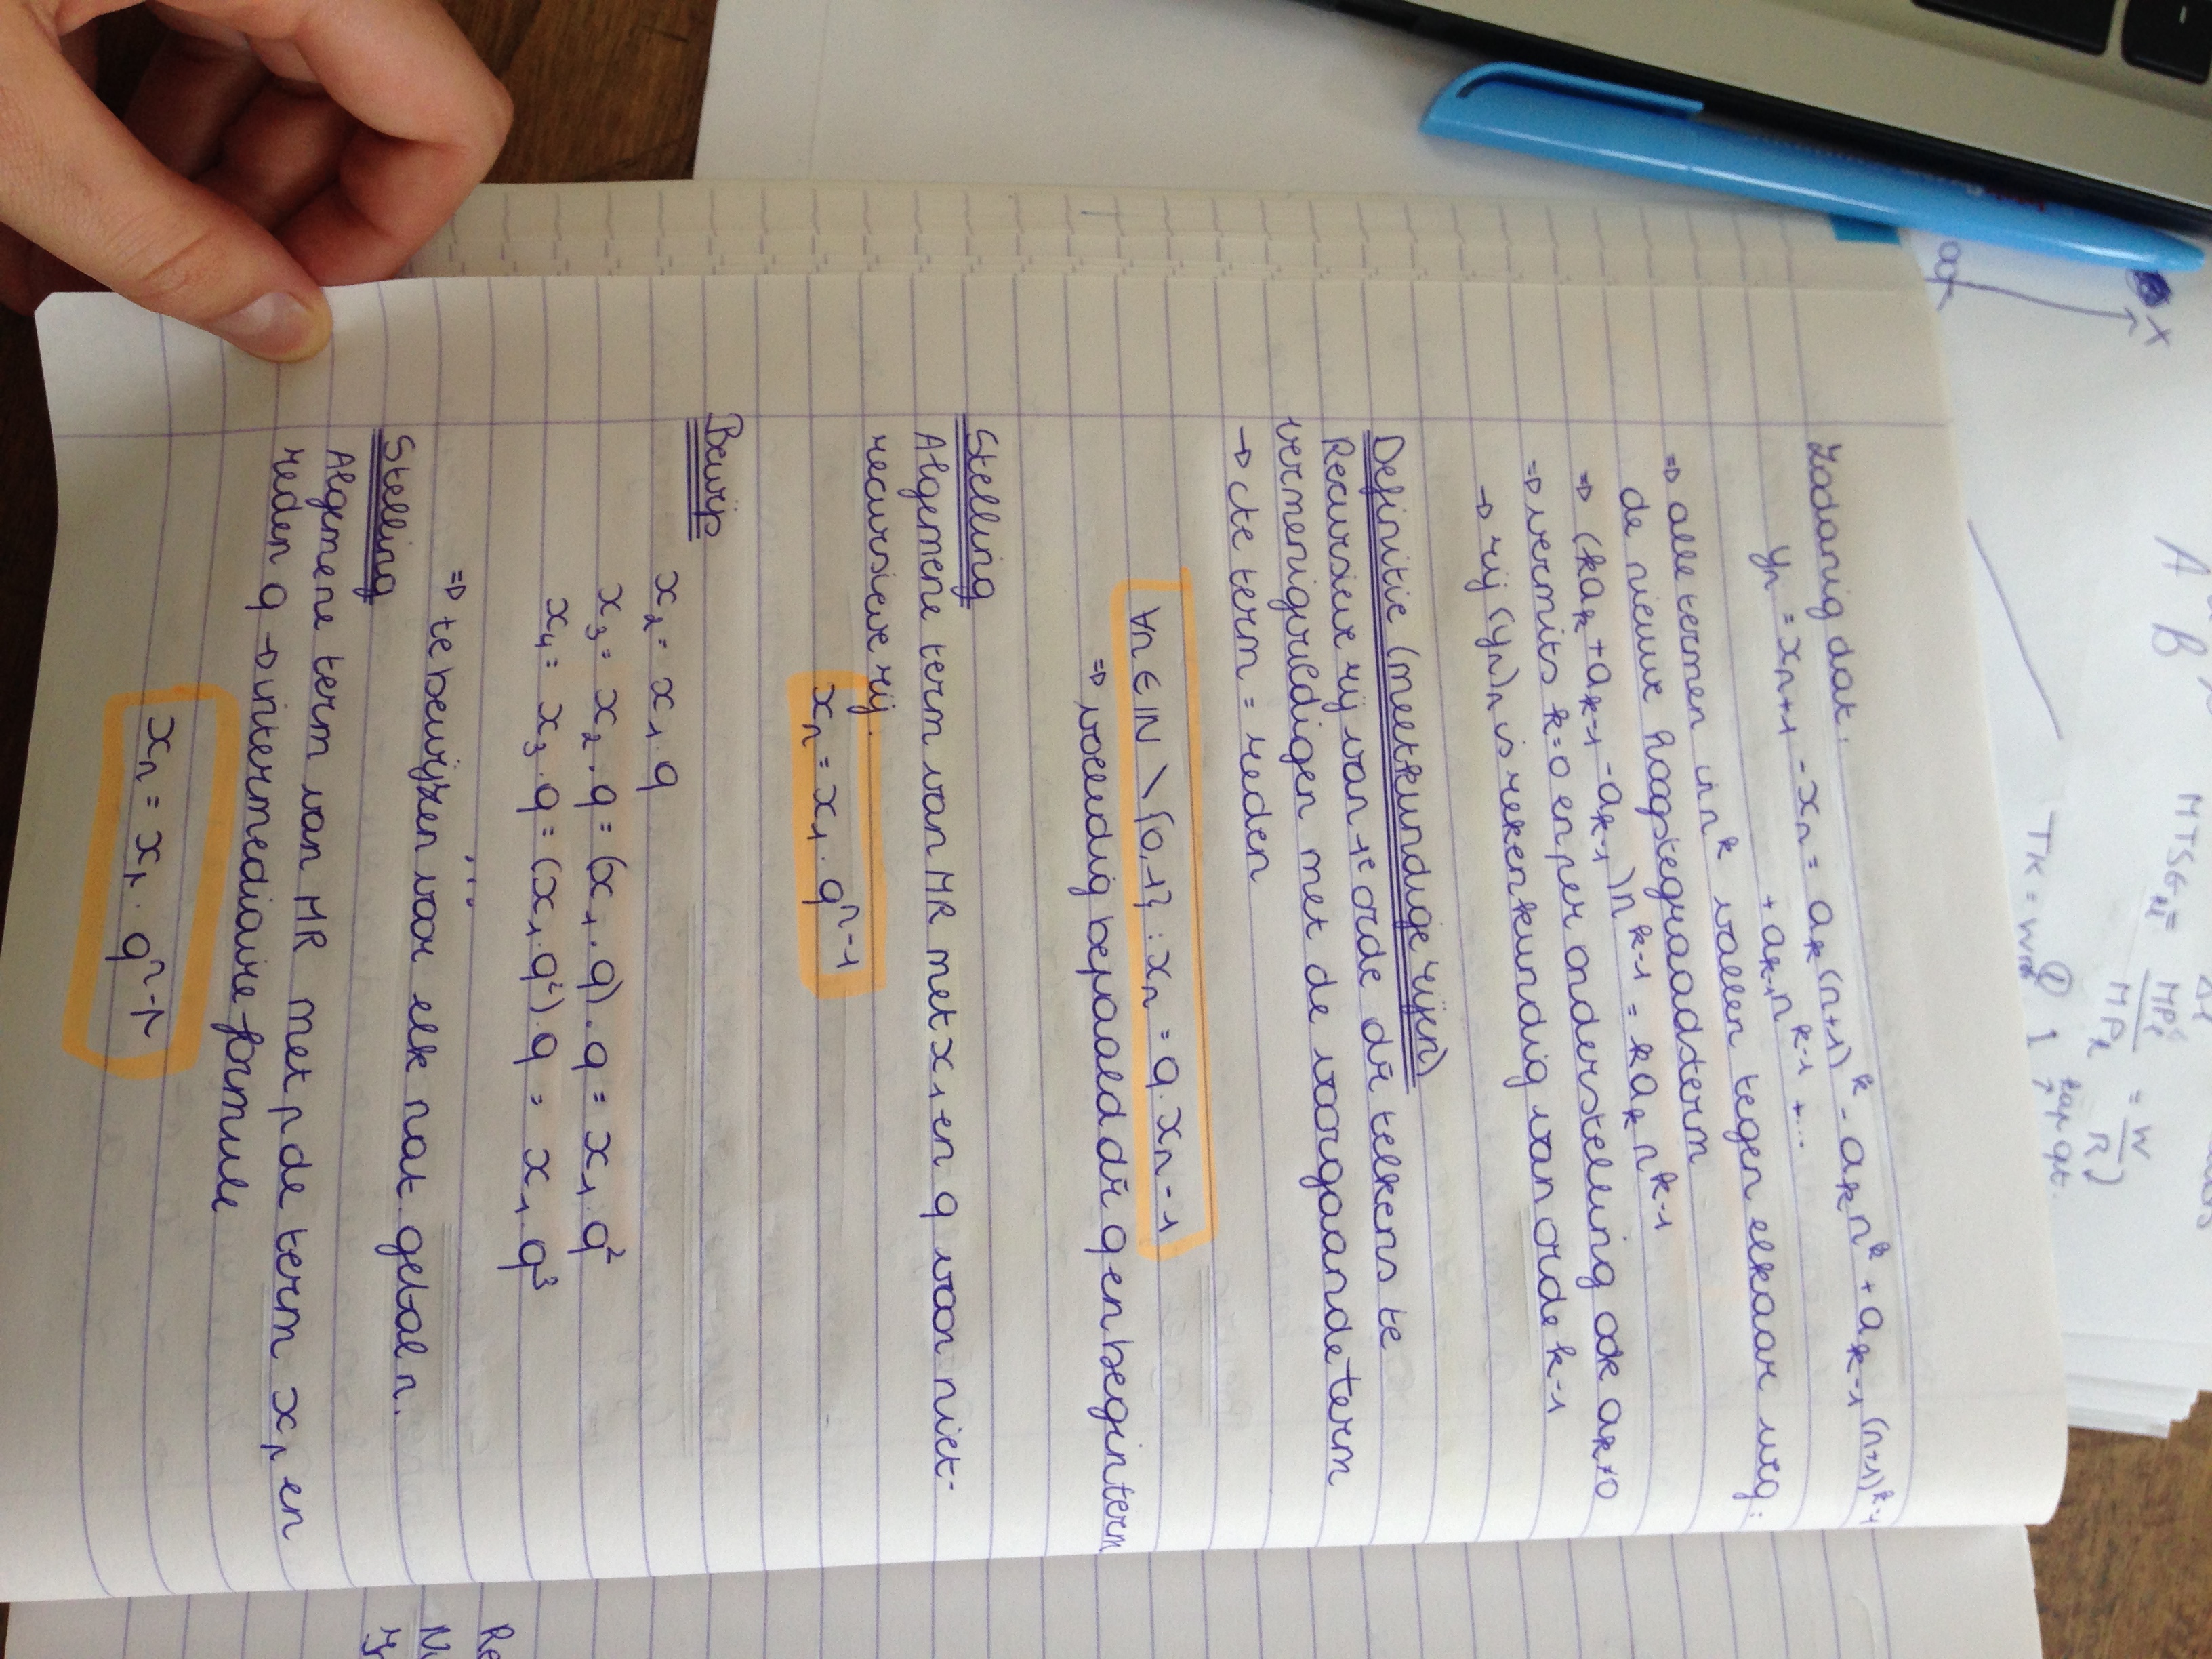 x
A B
MTSG
MPl
MPk
= W
R
TK = W
kap gt.
Zodanig dat:
yn = xn+1 - xn = ak(n+1)^k - akn^k + ak-1(n+1)^k-1
+ ak-1n^k-1 + ...
⇒ alle termen in n^k vallen tegen elkaar weg:
de nieuwe hoogstegraadsterm
⇒ (kak + ak-1 - ak-1)n^k-1 = kak n^k-1
⇒ vermits k=0 en per onderstelling ook ak≠0
→ rij (yn)n is rekenkundig van orde k-1
Definitie (meetkundige rijen)
Recursieve rij van 1e orde dr̄ telkens te
vermenigvuldigen met de voorgaande term
→ cte term = reden
∀n ∈ IN \ {0,1} : xn = q. xn-1
⇒ volledig bepaald dr̄ q en beginterm
Stelling
Algemene term van MR met x1 en q voor niet-
recursieve rij.
xn = x1 . q^n-1
Bewijs
x2 = x1 . q
x3 = x2 . q = (x1 . q) . q = x1 . q^2
x4 = x3 . q = (x1 . q^2) . q = x1 . q^3
...
⇒ te bewijzen voor elk nat. getal n.
Stelling
Algemene term van MR met p de term xp en
reden q → intermediaire formule
xn = xp . q^n-p
Re